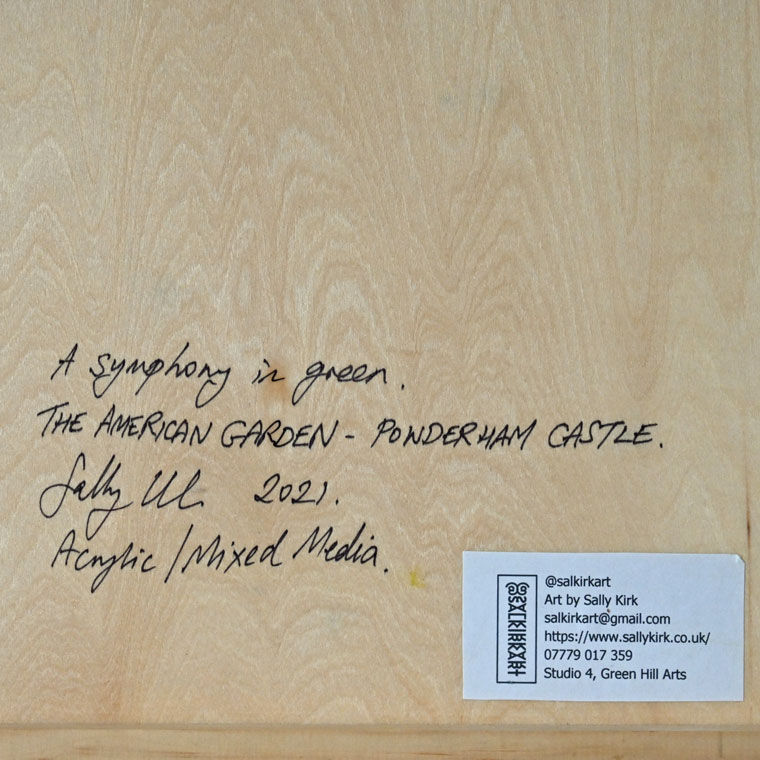 A symphony in green.
THE AMERICAN GARDEN - POWDERHAM CASTLE.
Sally Kirk 2021.
Acrylic / Mixed Media.
SALKIRKART
@salkirkart
Art by Sally Kirk
salkirkart@gmail.com
https://www.sallykirk.co.uk/
07779 017 359
Studio 4, Green Hill Arts